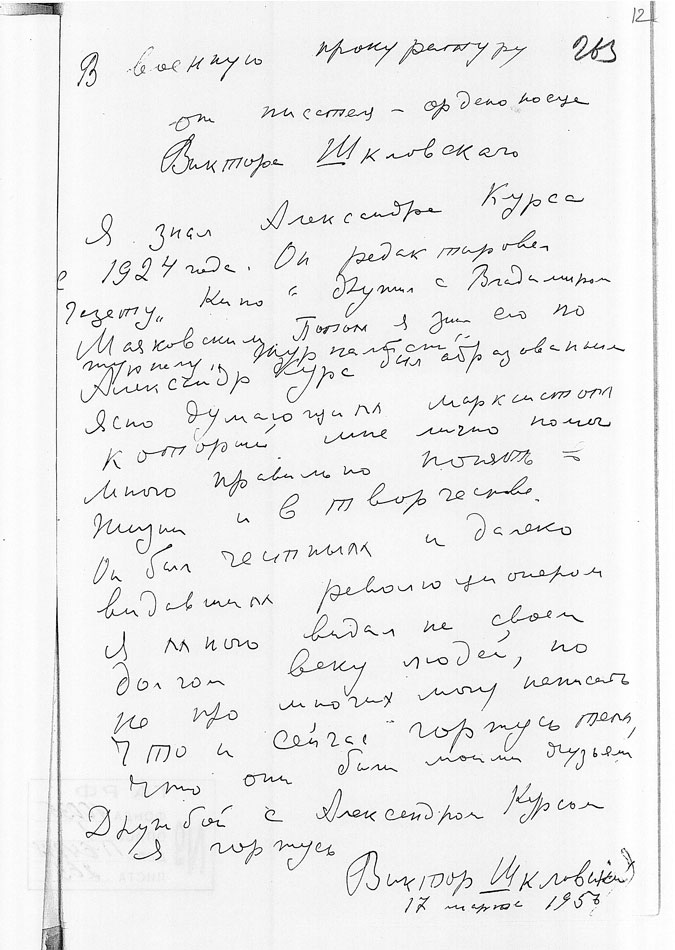 12
В военную прокуратуру 263
от писателя – орденоносца
Виктора Шкловского
Я знал Александра Курса
с 1924 года. Он редактировал
газету „Кино“ дружил с Владимиром
Маяковским. Потом я знал его по
журналу „Журналист“
Александр Курс был образованным
ясно думающим марксистом
который мне лично помог
много правильно понять в
жизни и в творчестве.
Он был честным и далеко
видавшим революционером
Я много видал на своем
долгом веку людей, но
не про многих могу написать
Что и сейчас горжусь тем,
что они были моими друзьями
Дружбой с Александром Курсом
я горжусь
Виктор Шкловский
17 марта 1956